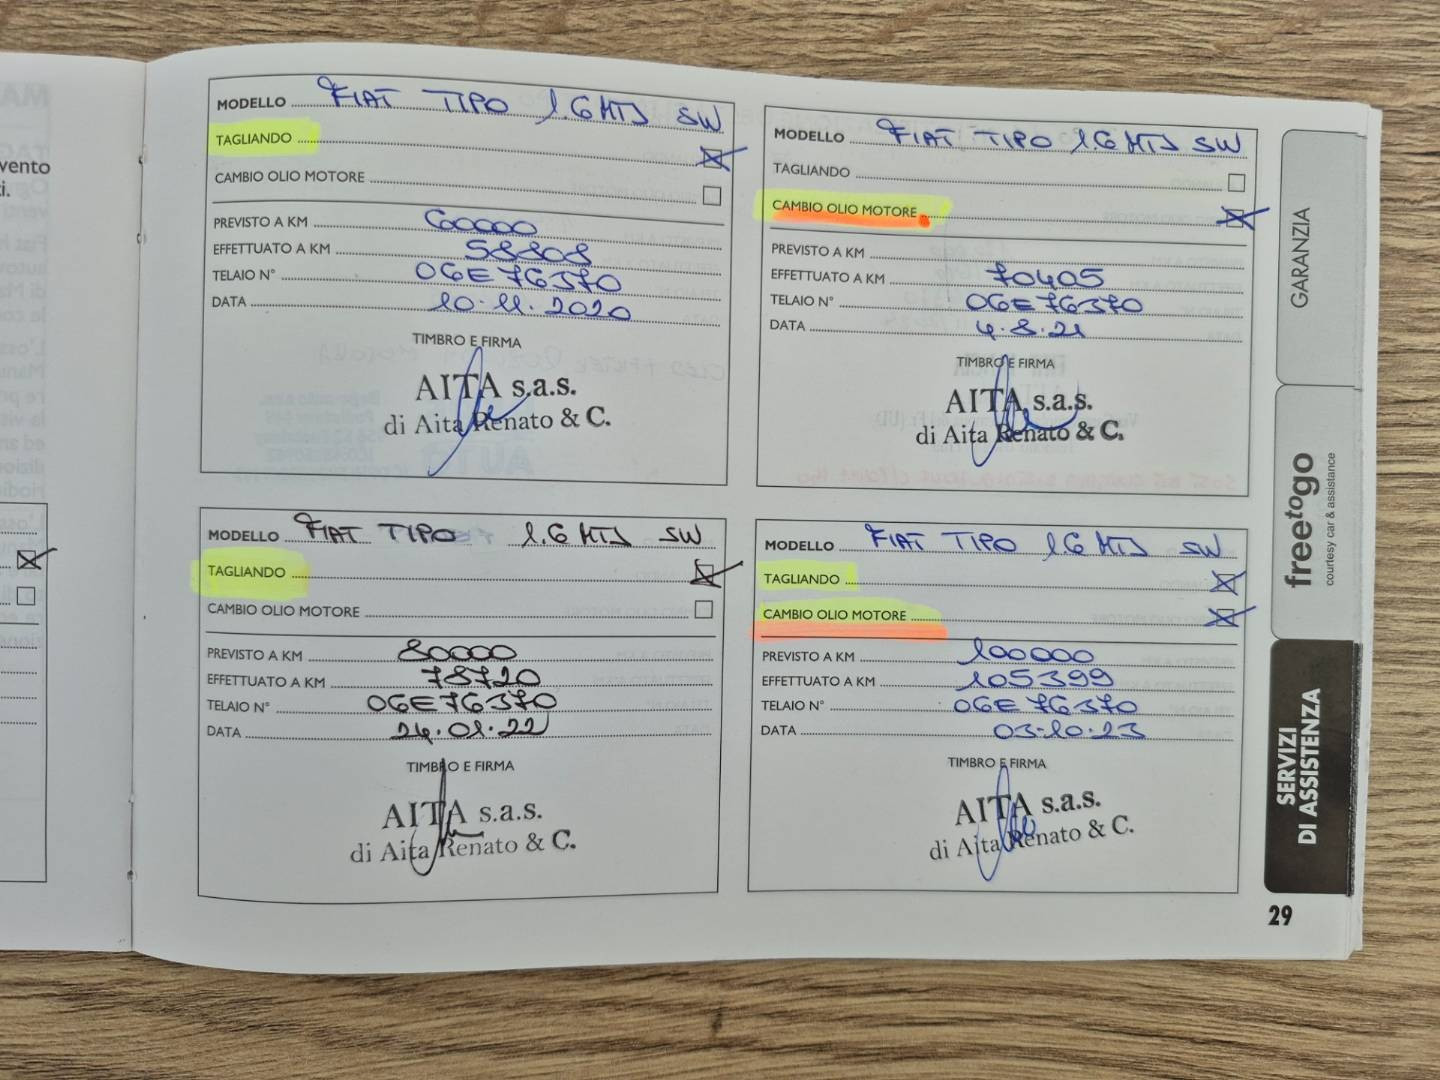 vento
i.
MODELLO FIAT TIPO 1.6 MTJ SW
TAGLIANDO
CAMBIO OLIO MOTORE
PREVISTO A KM 60000
EFFETTUATO A KM 58808
TELAIO N° 06E76370
DATA 10.11.2020
TIMBRO E FIRMA
AITA s.a.s.
di Aita Renato & C.
MODELLO FIAT TIPO 1.6 MTJ SW
TAGLIANDO
CAMBIO OLIO MOTORE
PREVISTO A KM
EFFETTUATO A KM 70405
TELAIO N° 06E76370
DATA 4.8.21
TIMBRO E FIRMA
AITA s.a.s.
di Aita Renato & C.
MODELLO FIAT TIPO 1.6 MTJ SW
TAGLIANDO
CAMBIO OLIO MOTORE
PREVISTO A KM 80000
EFFETTUATO A KM 78720
TELAIO N° 06E76370
DATA 24.01.22
TIMBRO E FIRMA
AITA s.a.s.
di Aita Renato & C.
MODELLO FIAT TIPO 1.6 MTJ SW
TAGLIANDO
CAMBIO OLIO MOTORE
PREVISTO A KM 100000
EFFETTUATO A KM 105399
TELAIO N° 06E76370
DATA 03.10.23
TIMBRO E FIRMA
AITA s.a.s.
di Aita Renato & C.
GARANZIA
freetogo
courtesy car & assistance
SERVIZI
DI ASSISTENZA
29